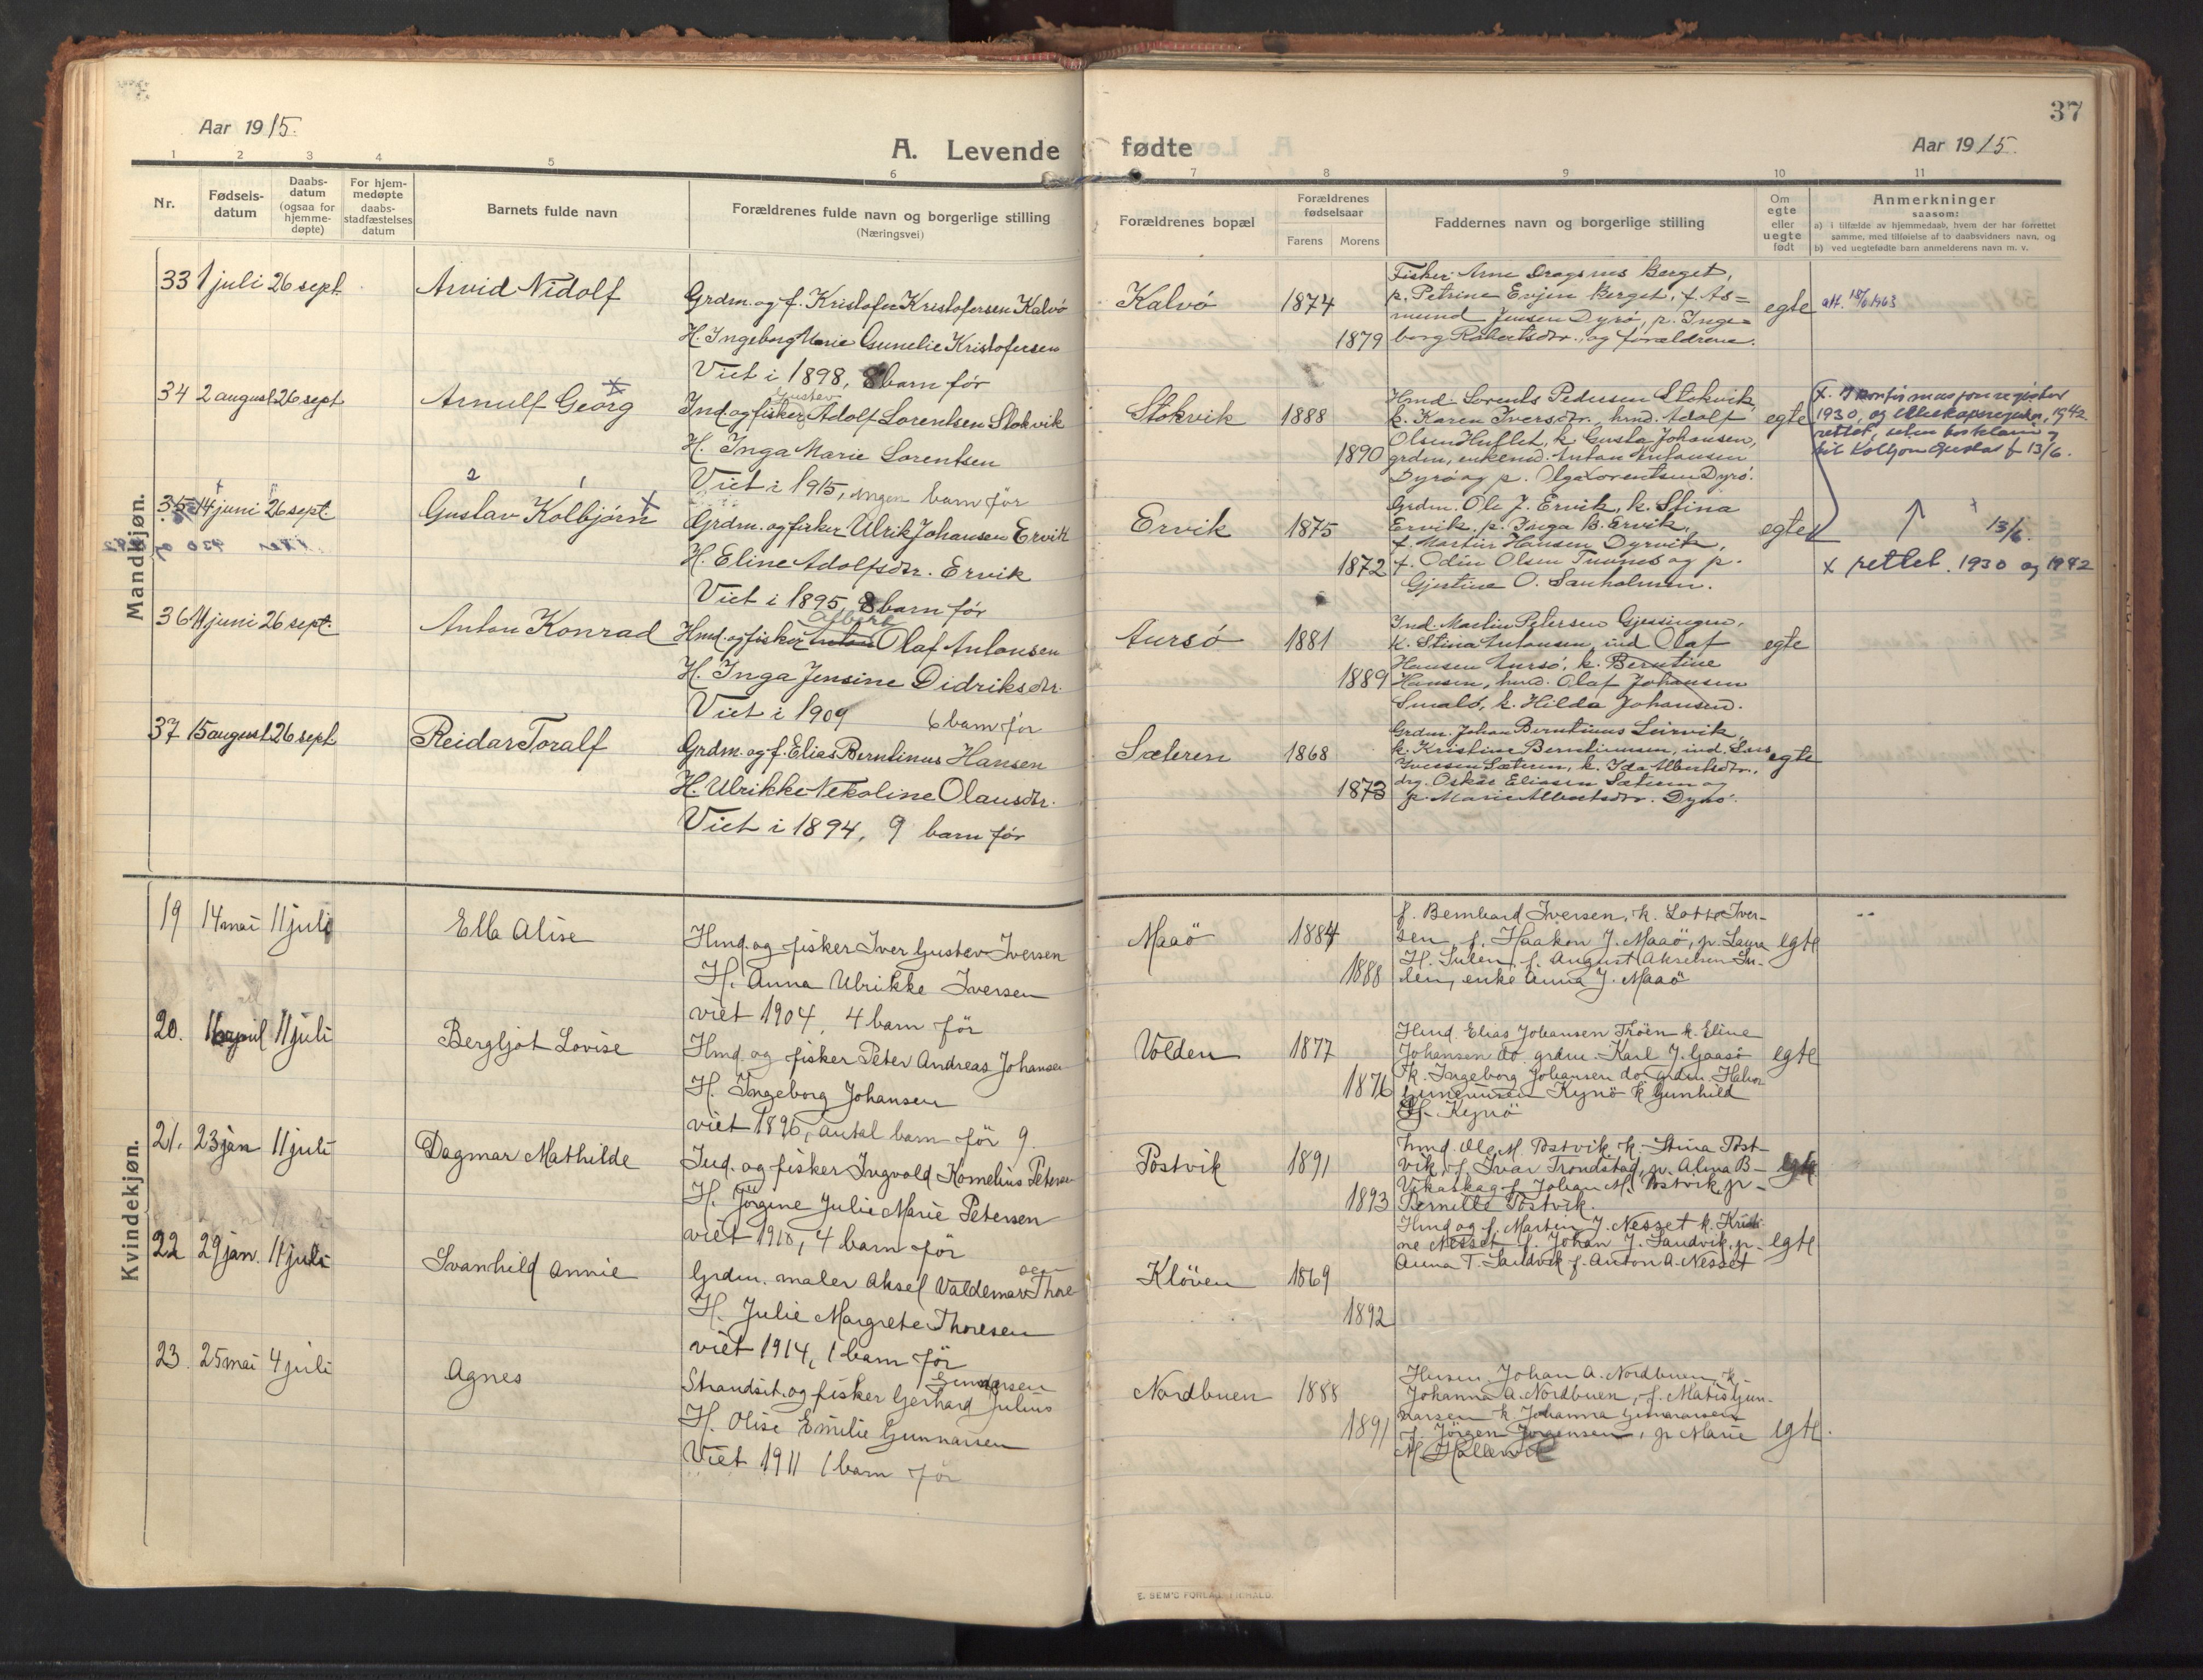 37
Aar 1915.
A. Levende fødte
Aar 1915.
1 2 3 4 5 6 7 8 9 10 11
Nr.
Fødsels-
datum
Daabs-
datum
(ogsaa for
hjemme-
døpte)
For hjem-
medøpte
daabs-
stadfæstelses
datum
Barnets fulde navn
Forældrenes fulde navn og borgerlige stilling
(Næringsvei)
Forældrenes bopæl
Forældrenes
fødselsaar
Farens Morens
Faddernes navn og borgerlige stilling
Om
egte
eller
uegte
født
Anmerkninger
saasom:
a) i tilfælde av hjemmedaab, hvem der har forrettet
samme, med tilføielse af to daabsvidners navn, og
b) ved uegtefødte barn anmelderens navn m. v.
Mandkjøn.
33 1 juli 26 sept. Arvid Nidolf
Grdm. og f. Kristofer Kristofersen Kalvö
H. Ingeborg Marie Gunelie Kristofersen
Viet i 1898, 8 barn før
Kalvö 1874
1879
Fisker Arne Dragsnes Berget,
p. Petrine Evjen Berget, f. As=
mund Jensen Dyrö, p. Inge=
borg Robertsdtr. og forældrene.
egte
att. 1963
34 2 august 26 sept Arnulf Georg x
Gustav
Ind. og fisker Adolf Lorentsen Stokvik
H. Inga Marie Lorentsen
Viet i 1915, ingen barn før
Stokvik 1888
1890
Hmd. Lorents Pedersen Stokvik,
k. Karen Iversdtr. hmd. Adolf
Olsen Hullet, k. Gusta Johansen,
grdm, enkemd. Anton Antonsen
Dyrö og p. Olga Lorentsen Dyrö.
egte
x. I konfirmasjonsregister
1930, og 1942
rettet,
til Kolbjørn Gustav f 13/6.
35 14 juni 26 sept. Gustav Kolbjørn x
2 1
Grdm. og fisker Ulrik Johansen Ervik
H. Eline Adolfsdtr. Ervik
Viet i 1895, 8 barn før
Ervik 1875
1872
Grdm. Ole J. Ervik, k. Stina
Ervik, p. Inga B. Ervik,
f. Martin Hansen Dyrvik,
f. Odin Olsen Tunnes og p.
Gjertine O. Sanholmen.
egte
13/6.
x rettet. 1930 og 1942
36 11 juni 26 sept. Anton Konrad
Albert
Hmd. og fisker Anton Olaf Antonsen
H. Inga Jensine Didriksdtr.
Viet i 1909 6 barn før
Aursö 1881
1889
Ind. Martin Petersen Gjessingen,
k. Stina Antonsen, ind Olaf
Hansen Aursö, k. Berntine
Hansen, hmd. Olaf Johansen
k. Hilda Johansen.
egte
37 15 august 26 sept Reidar Toralf
Grdm. og f. Elias Berntinus Hansen
H. Ulrikke Nekoline Olausdtr.
Viet i 1894, 9 barn før
Sæteren 1868
1873
Grdm. Johan Berntinus Leirvik,
k. Kristine Berntinusen, ind. Lars
Iversen Sæteren, k. Ida Albertsdtr.,
drg. Oskar Eliasen Sæteren og
p. Marie Albertsdtr. Dyrö.
egte
Kvindekjøn.
19 14 mai 11 juli Ella Alise
Hmd. og fisker Iver Gustav Iversen
H. Anna Ulrikke Iversen
viet 1904, 4 barn før
Maaö 1884
1888
f. Bernhard Iversen, k. Lotte Iver-
sen, f. Haakon J. Maaö, p. Laura
H. Sulen, f. August Akselsen Su-
len, enke Anna J. Maaö
egte
20. 11 april 11 juli Bergljot Lovise
Hmd. og fisker Peter Andreas Johansen
H. Ingeborg Johansen
viet 1896, antal barn før 9.
Volden 1877
1876
Hmd. Elias Johansen Tröen k. Eline
Johansen do. grdm. Karl J. Gaasö
k. Ingeborg Johansen do grdm. Halvor
Gunerusen Kynö k Gunhild
H. Kynö
egte
21. 23 jan 11 juli Dagmar Mathilde
Ind. og fisker Ingvold Kornelius Petersen
H. Jörgine Julie Marie Petersen
viet 1910, 4 barn før
Postvik 1891
1893
Hmd. Ole M. Postvik, k. Stina Post-
vik, f. Ivar Trondstad, p. Alma B-
Vikaskag f. Johan M. Postvik, p-
Pernille Postvik.
egte
22 29 jan. 11 juli Svanhild Annie
Grdm. maler Aksel Valdemar Thore
sen
H. Julie Margrete Thoresen
viet 1914, 1 barn før
Klöven 1869
1892
Hmd og f. Marten J. Nesset k. Kristi-
ne Nesset f. Johan J. Sandvik, p.
Anna T. Sandvik f. Anton A. Nesset
egte
23. 25 mai 4 juli Agnes
Gunnarsen
Strandsit. og fisker Gerhard Julius
H. Olise Emilie Gunnarsen
Viet 1911 1 barn før
Nordbuen 1888
1891
Husm. Johan A. Nordbuen, k.
Johanna A. Nordbuen, f. Matis Gun-
narsen k Johanna Gunnarsen
f. Jörgen Jörgensen, p Marie
M Hallanvik
egte.
E. SEM'S FORLAG